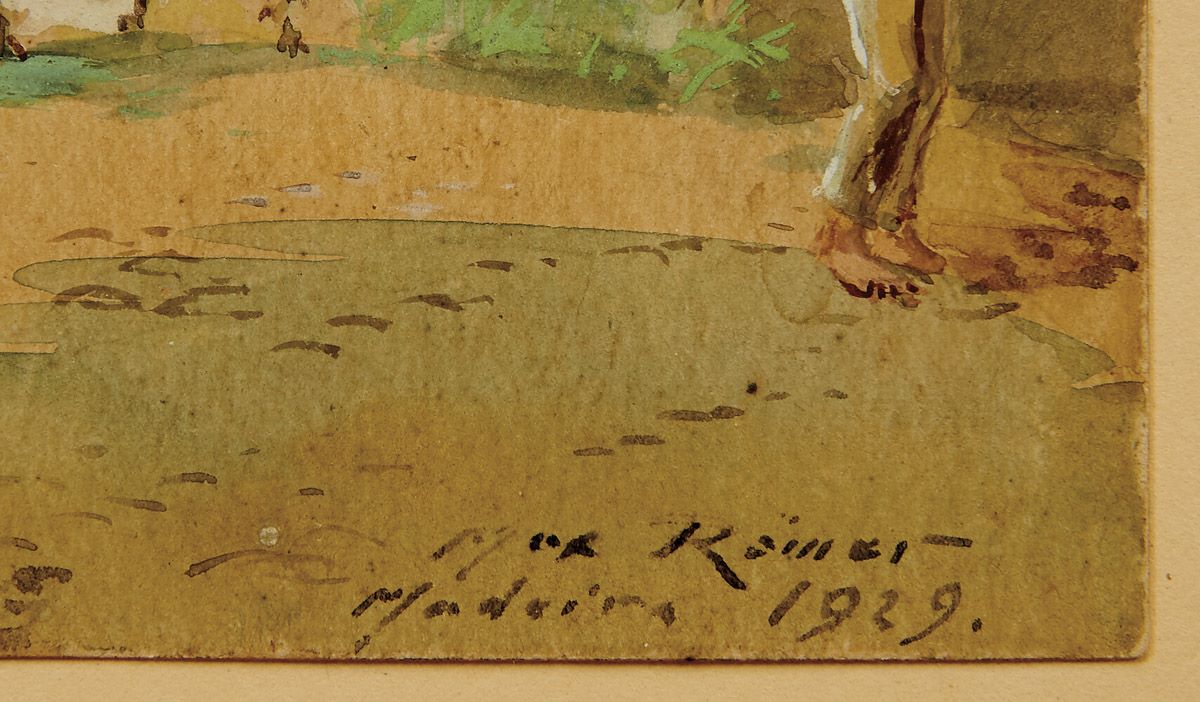 Max Römer
Madeira 1929.